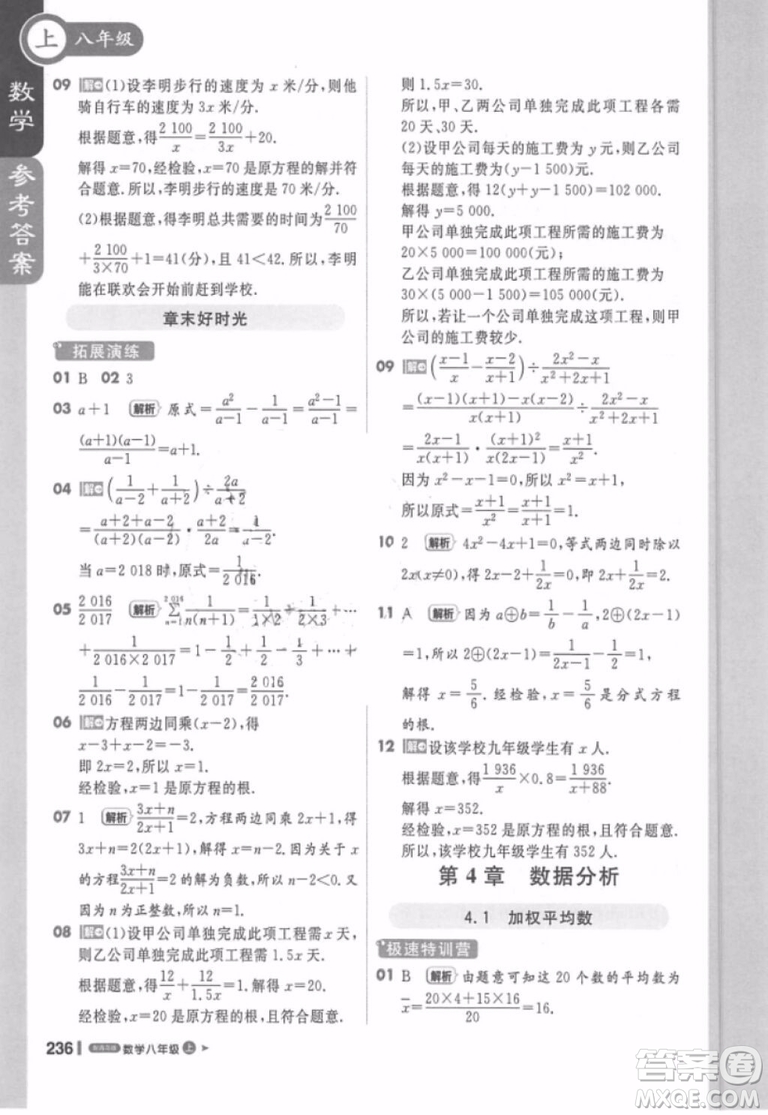 上 八年级
数学 参考答案
09 解 (1)设李明步行的速度为 x 米/分,则他
骑自行车的速度为 3x 米/分.
根据题意,得 2 100/x = 2 100/3x + 20.
解得 x=70,经检验,x=70 是原方程的解并符
合题意. 所以,李明步行的速度是 70 米/分.
(2)根据题意,得李明总共需要的时间为 2 100/70
+ 2 100/(3×70) + 1=41(分),且 41<42. 所以,李明
能在联欢会开始前赶到学校.
章末好时光
拓展演练
01 B 02 3
03 a+1 解析 原式= a²/(a-1) - 1/(a-1) = (a²-1)/(a-1) =
(a+1)(a-1)/(a-1) =a+1.
04 解 (1/(a-2) + 1/(a+2)) ÷ 2a/(a+2)
= (a+2+a-2)/((a+2)(a-2)) · (a+2)/2a = 1/(a-2).
当 a=2 018 时,原式= 1/2 016.
05 2 016/2 017 解析 2 016 ∑ n=1 1/(n(n+1)) = 1/(1×2) + 1/(2×3) + ⋯
+ 1/(2 016×2 017) =1- 1/2 + 1/2 - 1/3 + ⋯ +
1/2 016 - 1/2 017 =1- 1/2 017 = 2 016/2 017.
06 解 方程两边同乘(x-2),得
x-3+x-2=-3.
即 2x=2,则 x=1.
经检验,x=1 是原方程的根.
07 1 解析 (3x+n)/(2x+1) =2,方程两边同乘 2x+1,得
3x+n=2(2x+1),解得 x=n-2. 因为关于 x
的方程 (3x+n)/(2x+1) =2 的解为负数,所以 n-2<0,
即 n<2. 因为 n 为正整数,所以 n=1.
08 解 (1)设甲公司单独完成此项工程需 x 天,
则乙公司单独完成此项工程需 1.5x 天.
根据题意,得 12/x + 12/1.5x =1. 解得 x=20.
经检验,x=20 是原方程的根,且符合题意.
236 数学八年级 上
则 1.5x=30.
所以,甲、乙两公司单独完成此项工程各需
20 天、30 天.
(2)设甲公司每天的施工费为 y 元,则乙公司
每天的施工费为(y-1 500)元.
根据题意,得 12(y+y-1 500)=102 000.
解得 y=5 000.
甲公司单独完成此项工程所需的施工费为
20×5 000=100 000(元);
乙公司单独完成此项工程所需的施工费为
30×(5 000-1 500)=105 000(元).
所以,若让一个公司单独完成此项工程,甲
公司的施工费较少.
09 解 ((x-1)/x - (x-2)/(x+1)) ÷ (2x²-x)/(x²+2x+1)
= ((x-1)(x+1)-x(x-2))/(x(x+1)) ÷ (2x²-x)/(x²+2x+1)
= (2x-1)/(x(x+1)) · (x+1)²/(x(2x-1)) = (x+1)/x².
因为 x²-x-1=0,所以 x²=x+1.
所以原式= (x+1)/x² = (x+1)/(x+1) =1.
10 2 解析 4x²-4x+1=0,等式两边同时除以
2x(x≠0),得 2x-2+ 1/2x =0,所以 2x+ 1/2x =2.
11 A 解析 因为 a⊕b= 1/b - 1/a,2⊕(2x
-1)=1,所以 2⊕(2x-1)= 1/(2x-1) - 1/2 =1,
解得 x= 5/6. 经检验,x= 5/6 是分式方程
的根.
12 解 设该学校九年级学生有 x 人.
根据题意,得 1 936/x ×0.8= 1 936/(x+88).
解得 x=352.
经检验,x=352 是原方程的根,且符合题意.
所以,该学校九年级学生有 352 人.
第 4 章 数据分析
4.1 加权平均数
极速特训营
01 B 解析 由题意可知这 20 个数的平均数为
x̄= (20×4+15×16)/20 =16.
答案圈
MXQE.COM